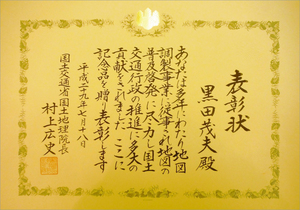 表彰状
黒田茂夫殿
あなたは多年にわたり地図
調製事業に従事され地図の
普及啓発に尽力し国土
交通行政の推進に多大の
貢献をされました ここに
記念品を贈り表彰します
平成二十九年七月十八日
国土交通省国土地理院長
村上広史